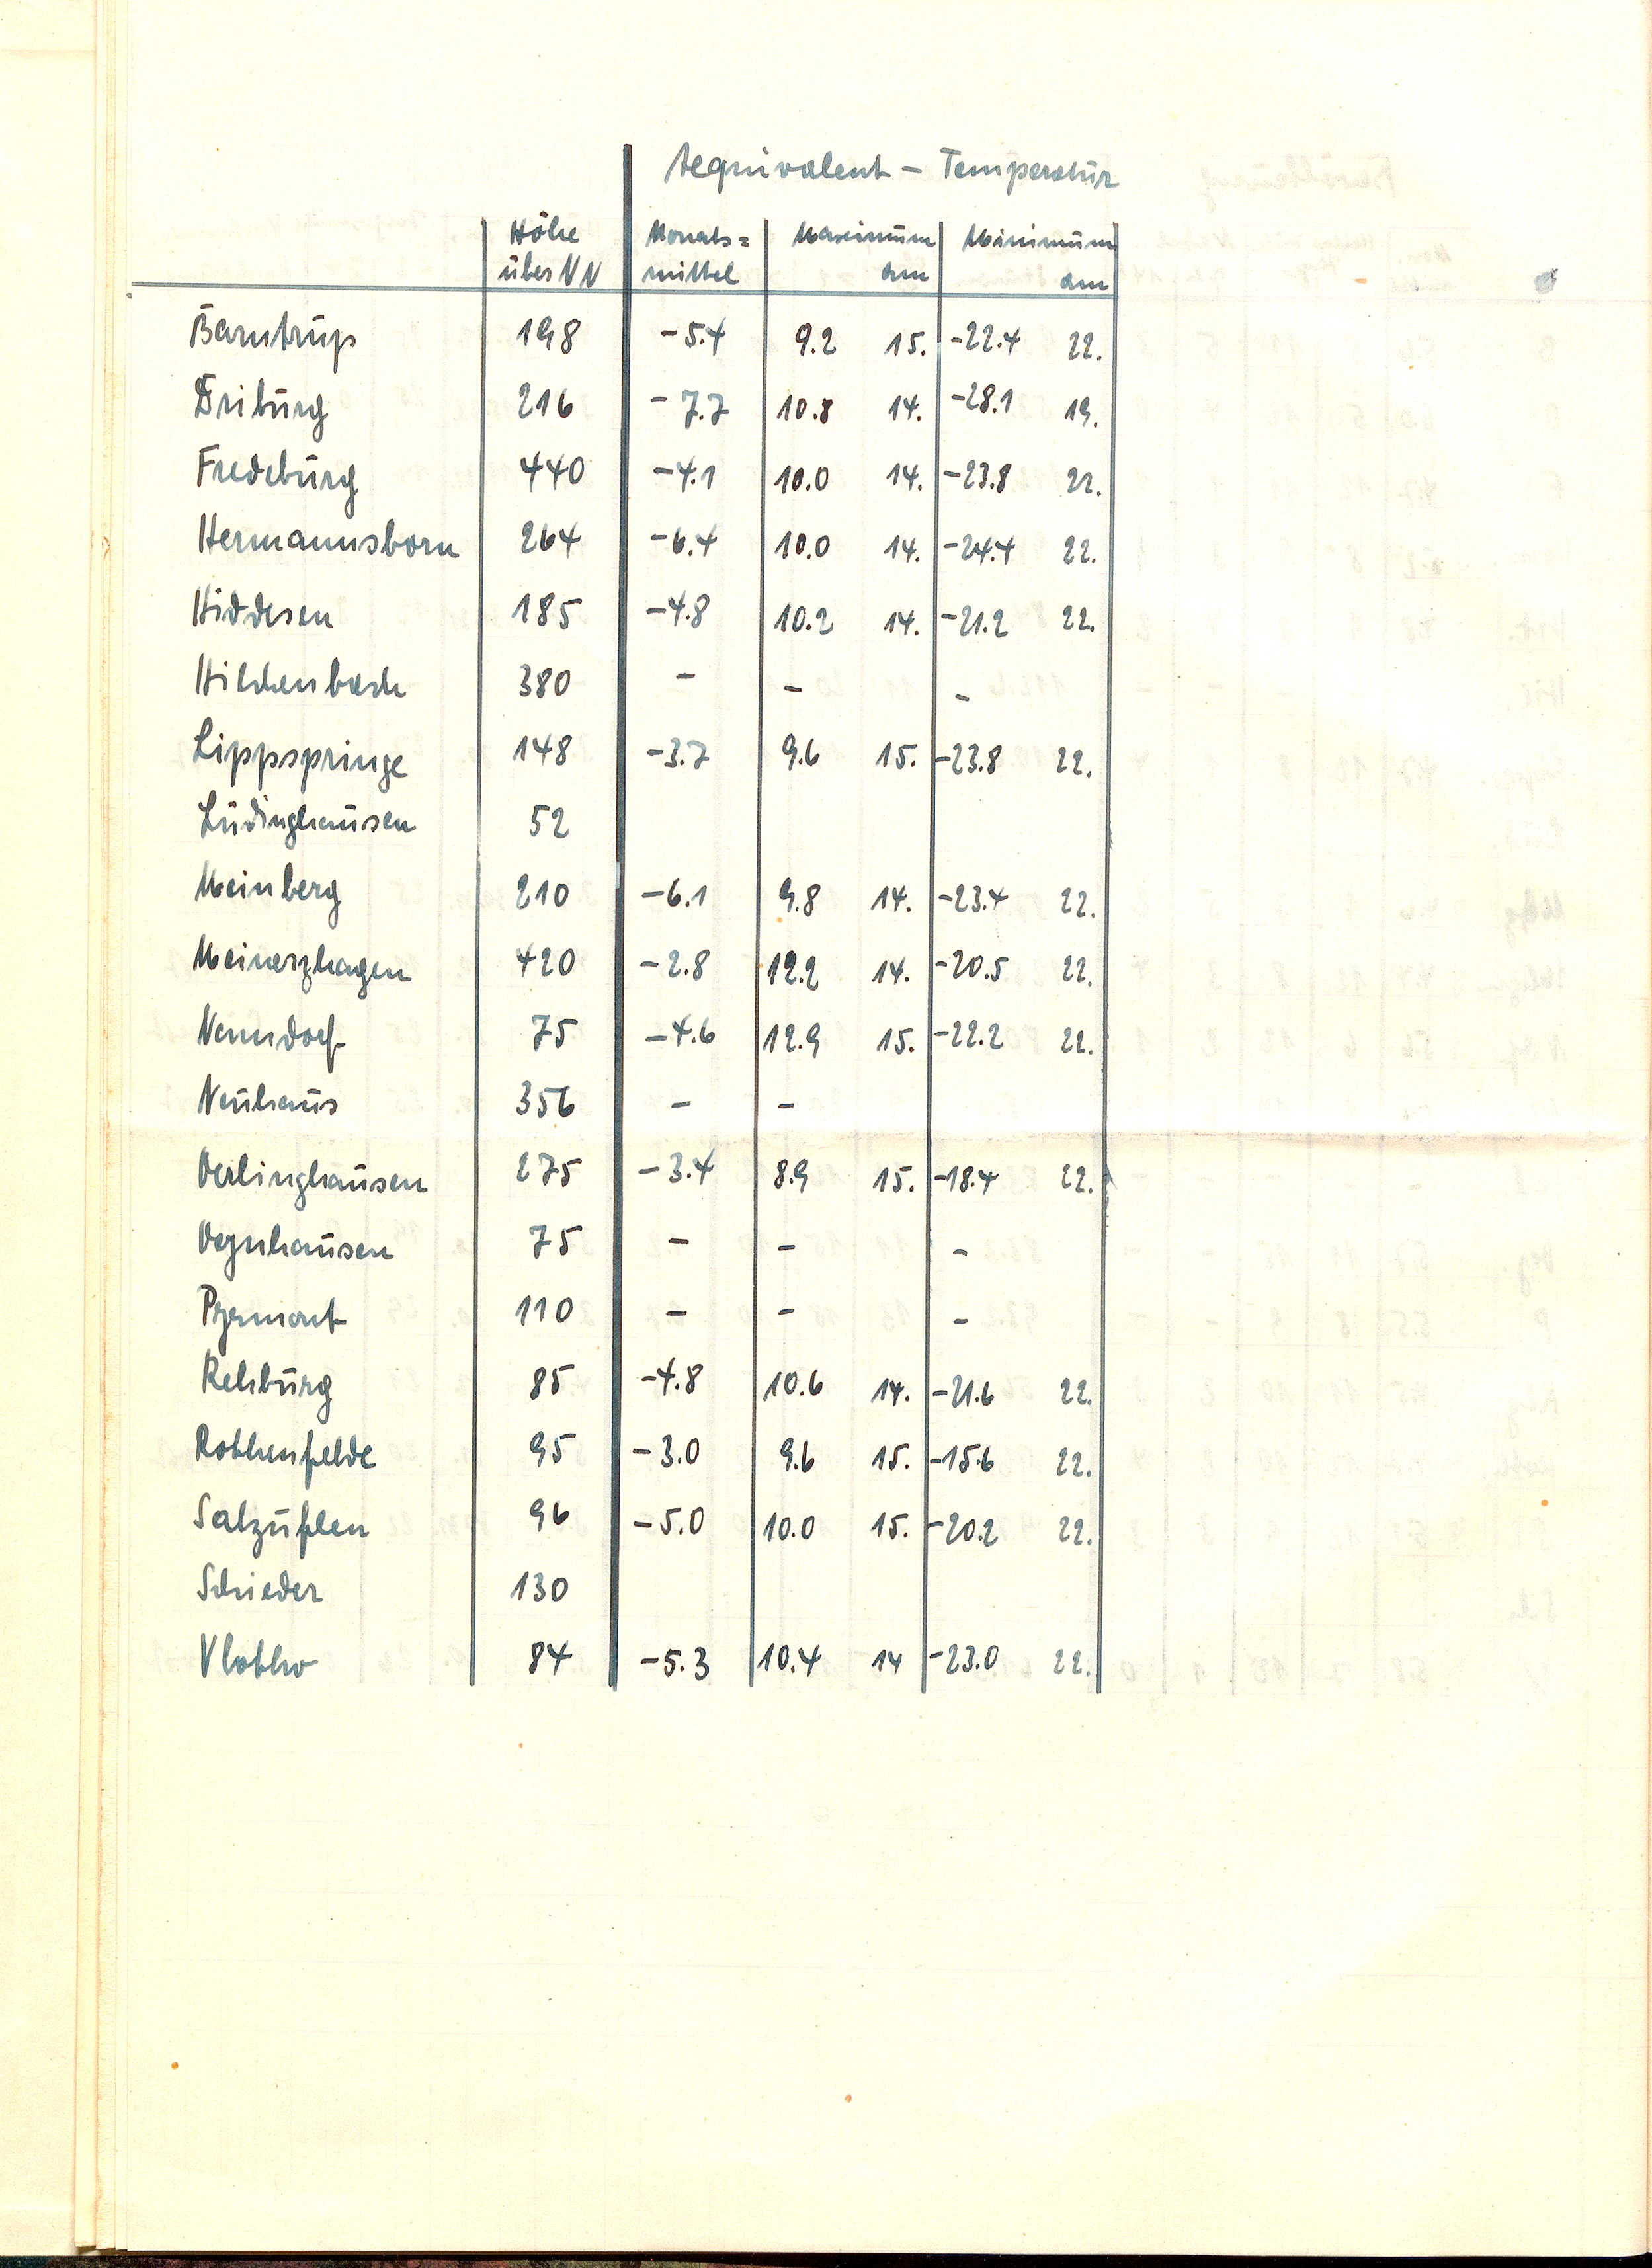 Aequivalent - Temperatur
Höhe über NN Monats= mittel Maximum am Minimum am
Barntrup 198 -5.4 9.2 15. -22.4 22.
Driburg 216 -7.7 10.8 14. -28.1 19.
Fredeburg 440 -4.1 10.0 14. -23.8 22.
Hermannsborn 264 -6.4 10.0 14. -24.4 22.
Hiddesen 185 -4.8 10.2 14. -21.2 22.
Hilchenbach 380 - - -
Lippspringe 148 -3.7 9.6 15. -23.8 22.
Lüdinghausen 52
Meinberg 210 -6.1 9.8 14. -23.4 22.
Meinerzhagen 420 -2.8 12.2 14. -20.5 22.
Nenndorf 75 -4.6 12.9 15. -22.2 22.
Neuhaus 356 - -
Oerlinghausen 275 -3.4 8.9 15. -18.4 22.
Oeynhausen 75 - - -
Pyrmont 110 - - -
Rehburg 85 -4.8 10.6 14. -21.6 22.
Rothenfelde 95 -3.0 9.6 15. -15.6 22.
Salzuflen 96 -5.0 10.0 15. -20.2 22.
Schieder 130
Vlotho 84 -5.3 10.4 14 -23.0 22.